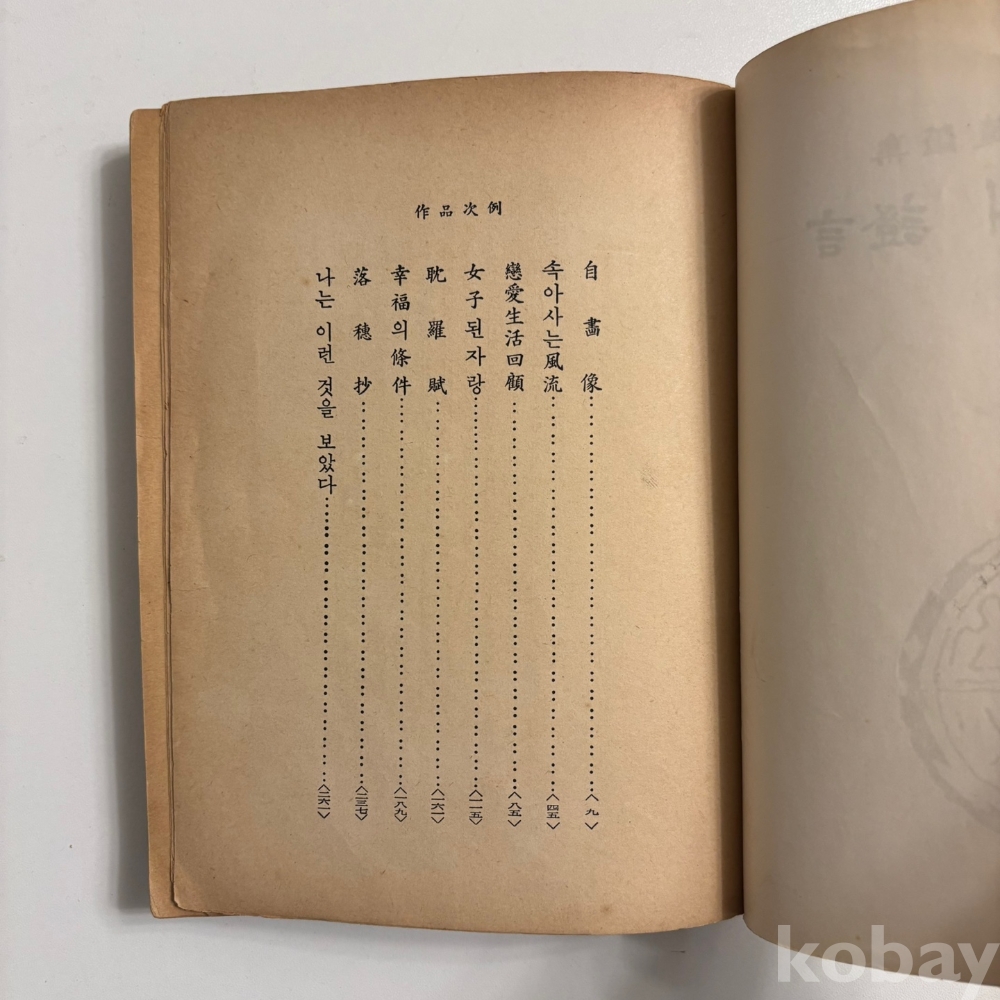 作品次例
自畵像〈九〉
속아사는風流〈四五〉
戀愛生活回顧〈八五〉
女子된자랑〈一一五〉
耽羅賦〈一六一〉
幸福의條件〈一八九〉
落穗抄〈二三七〉
나는 이런 것을 보았다〈二六一〉
證言
kobay